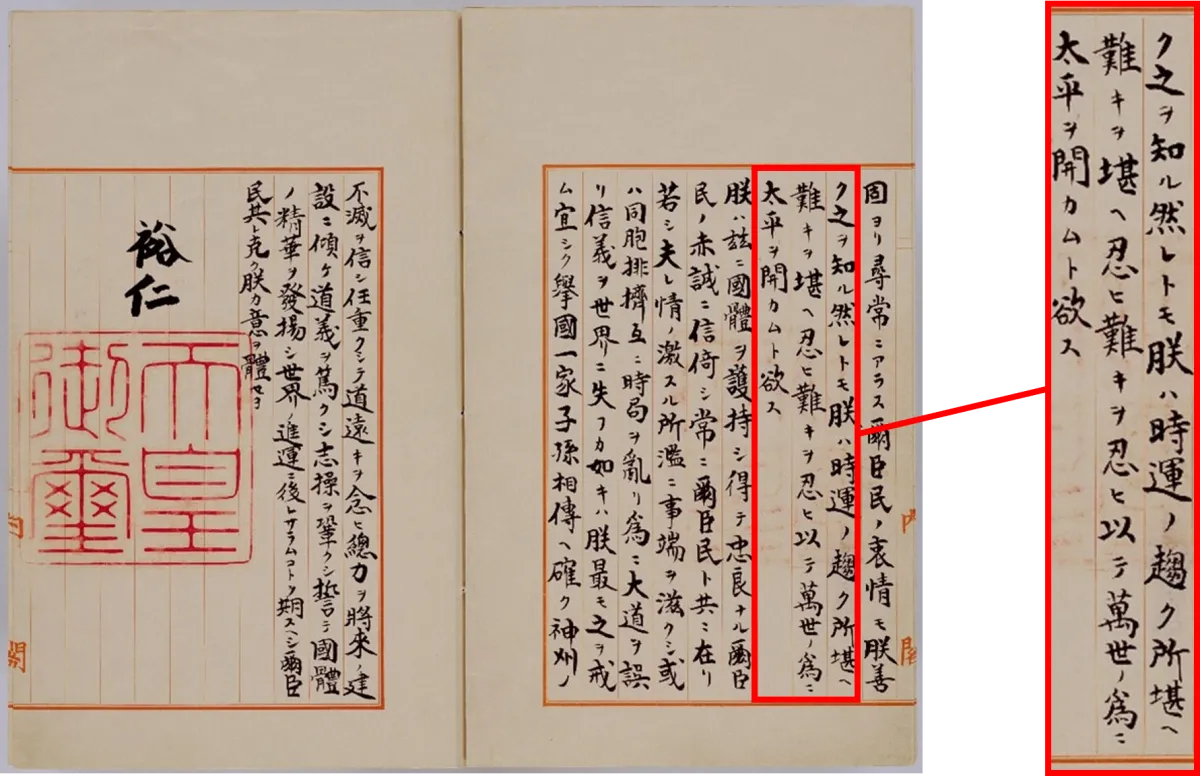 固ヨリ尋常ニアラス爾臣民ノ衷情モ朕善
ク之ヲ知ル然レトモ朕ハ時運ノ趨ク所堪ヘ
難キヲ堪ヘ忍ヒ難キヲ忍ヒ以テ萬世ノ爲ニ
太平ヲ開カムト欲ス
朕ハ茲ニ國體ヲ護持シ得テ忠良ナル爾臣
民ノ赤誠ニ信倚シ常ニ爾臣民ト共ニ在リ
若シ夫レ情ノ激スル所濫ニ事端ヲ滋クシ或
ハ同胞排擠互ニ時局ヲ亂リ爲ニ大道ヲ誤
リ信義ヲ世界ニ失フカ如キハ朕最モ之ヲ戒
ム宜シク擧國一家子孫相傳ヘ確ク神州ノ
不滅ヲ信シ任重クシテ道遠キヲ念ヒ總力ヲ將來ノ建
設ニ傾ケ道義ヲ篤クシ志操ヲ鞏クシ誓テ國體
ノ精華ヲ發揚シ世界ノ進運ニ後レサラムコトヲ期スヘシ爾臣
民其レ克ク朕カ意ヲ體セヨ
裕仁
天皇
御璽
ク之ヲ知ル然レトモ朕ハ時運ノ趨ク所堪ヘ
難キヲ堪ヘ忍ヒ難キヲ忍ヒ以テ萬世ノ爲ニ
太平ヲ開カムト欲ス